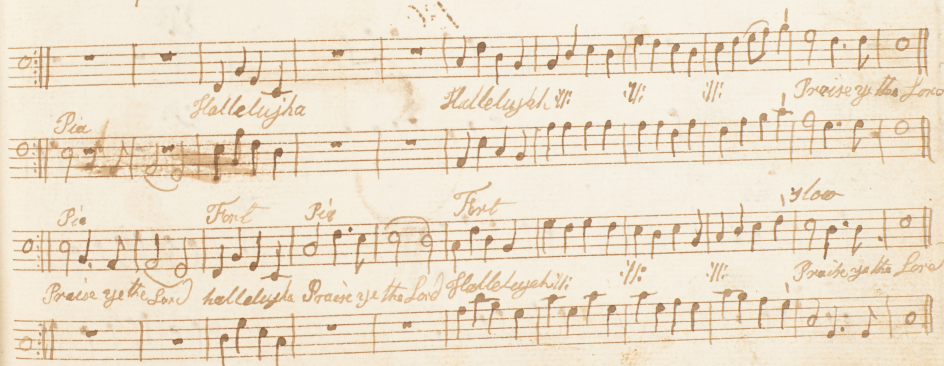 Hallelujha Hallelujah :||: :||: :||: Praise ye the Lord
Pia
Pia Fort Pia Fort Slow
Praise ye the Lord hallelujha Praise ye the Lord Hallelujah :||: :||: :||: Praise ye the Lord